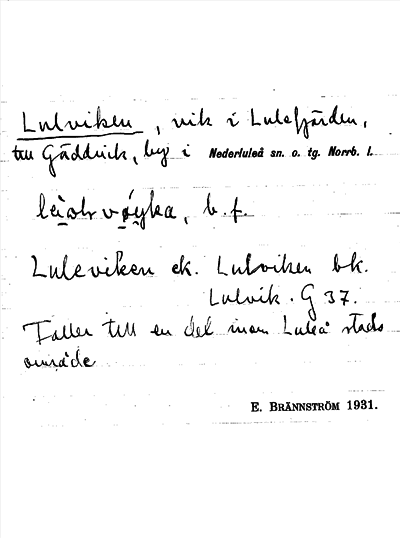 Lulviken, vik i Lulefjärden,
till Gäddvik, by i Nederluleå sn. o. tg. Norrb. l.
b. f.
Luleviken ek. Lulviken bk.
Lulvik. G 37.
Faller till en del inom Luleå stads
område
E. BRÄNNSTRÖM 1931.